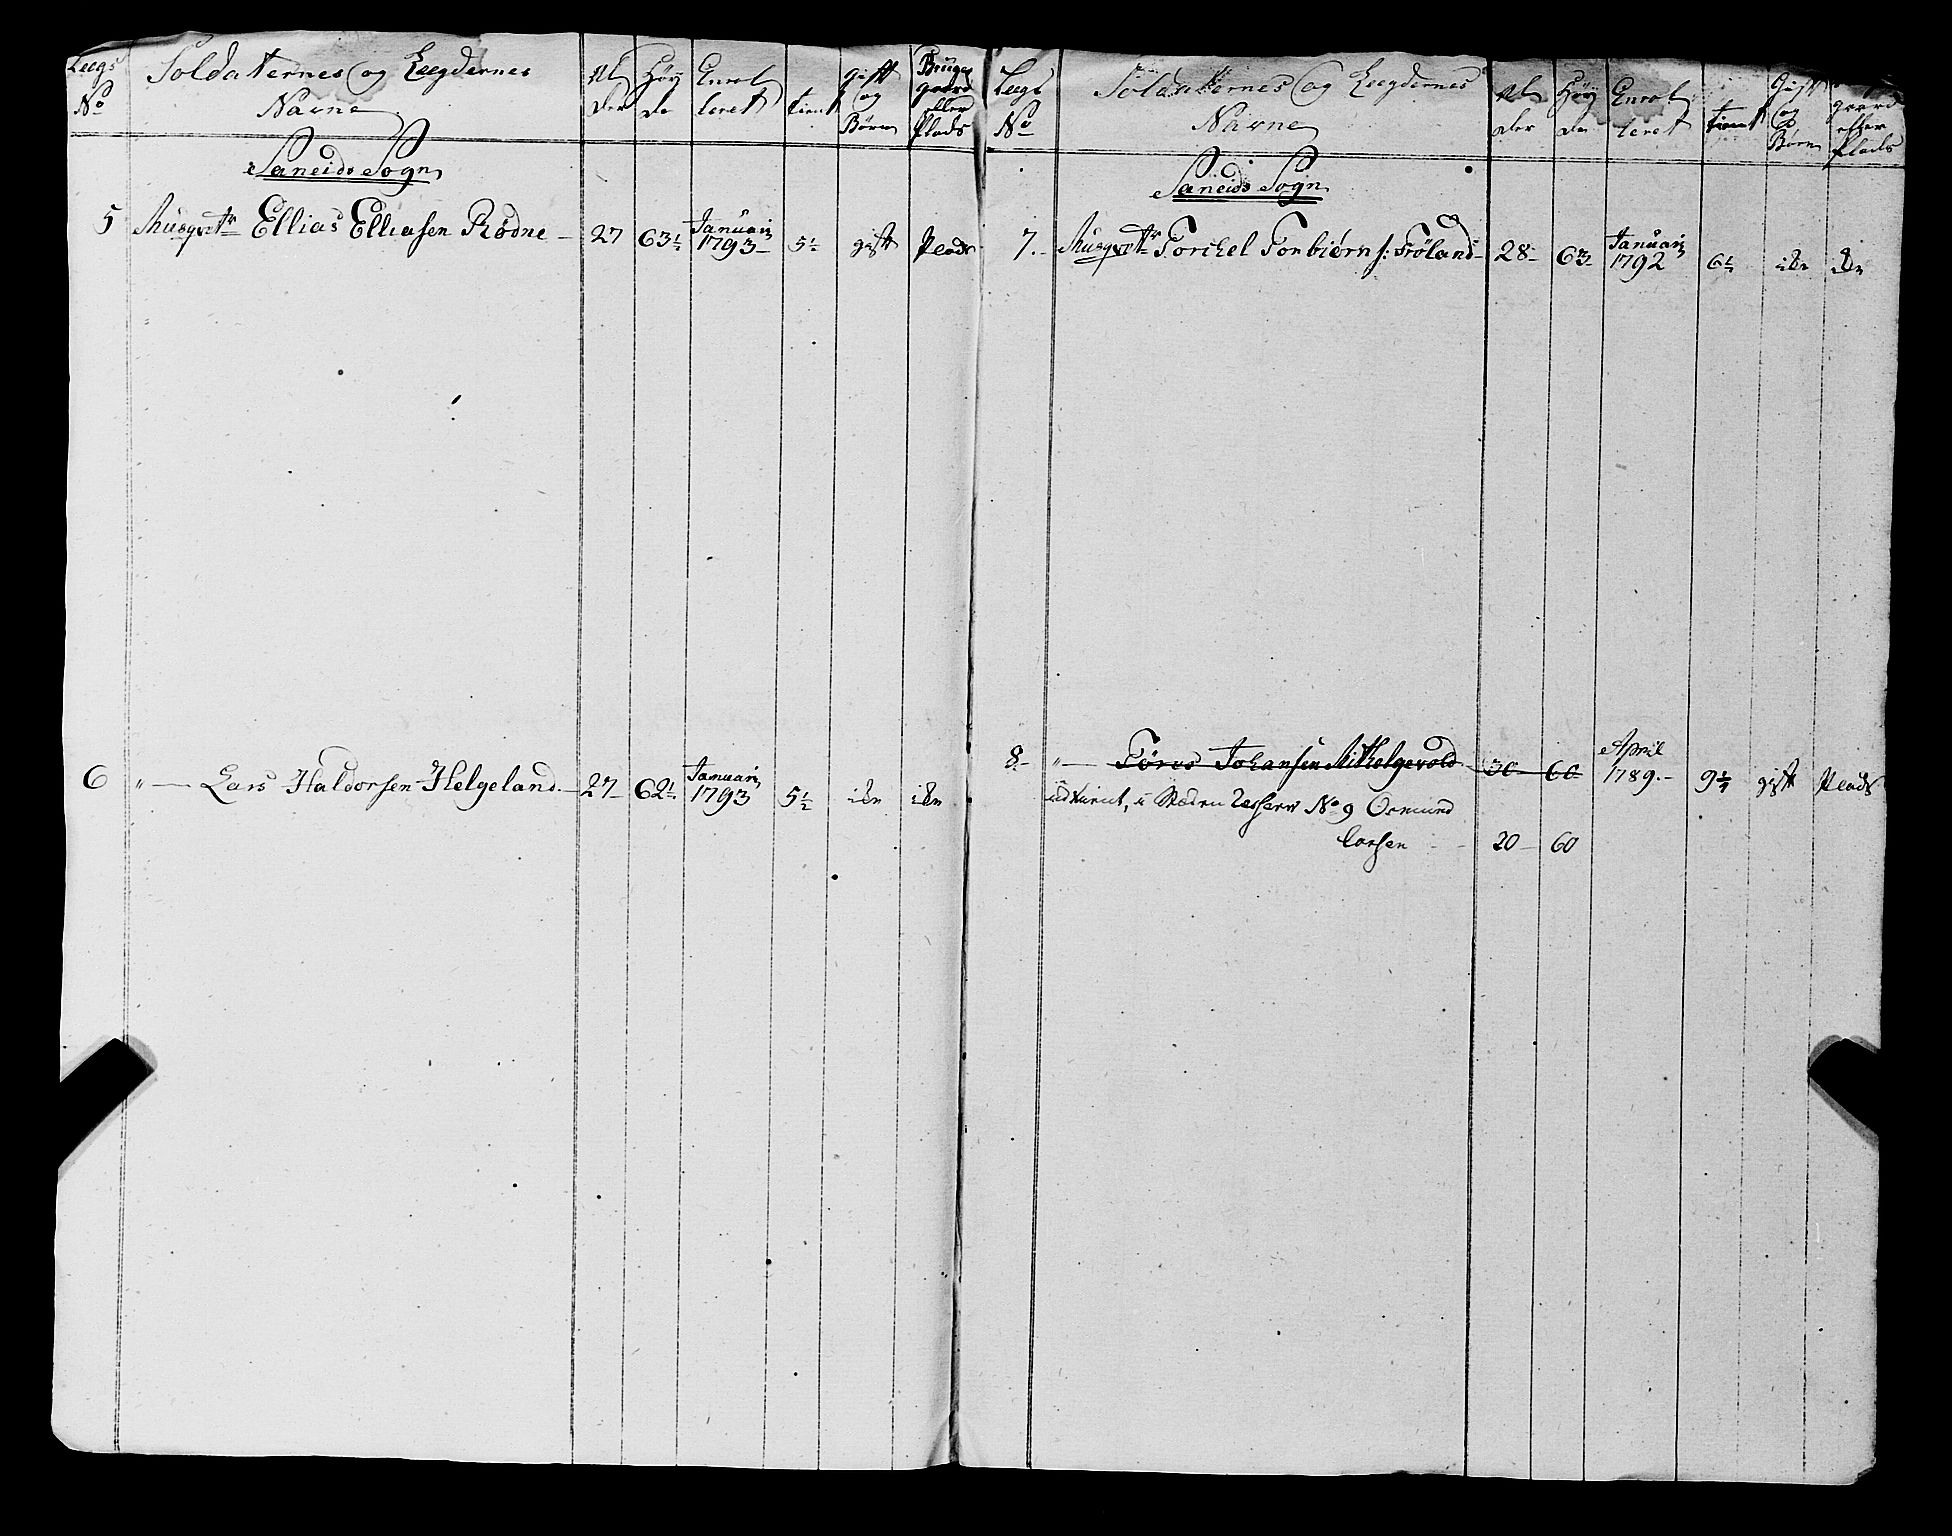 Lægs No | Soldaternes og Lægdernes Navne | Al der | Høy de | Enrol leret | tient | gift og Børn | Bruger gaard eller Plads
Saneids Sogn
5 Musqvetr Ellias Elliasen Rødne - 27 63½ Januari 1793 5½ gift Plads
6 " — Lars Haldorsen Helgeland - 27 62½ Januari 1793 5½ iden iden
Lægs No | Soldaternes og Lægdernes Navne | Al der | Høy de | Enrol leret | tient | Gift og Børn | gaard eller Plads
Saneids Sogn
7. Musqvetr Torchel Torbiørns: Frøland - 28 63 Januari 1792 6½ iden iden
8 " — Tørres Johansen Mithelgevold 30 60 April 1789 9¼ gift Plads
udtient, i Stæden Reserv No 9 Osmund
Larsen 20 60